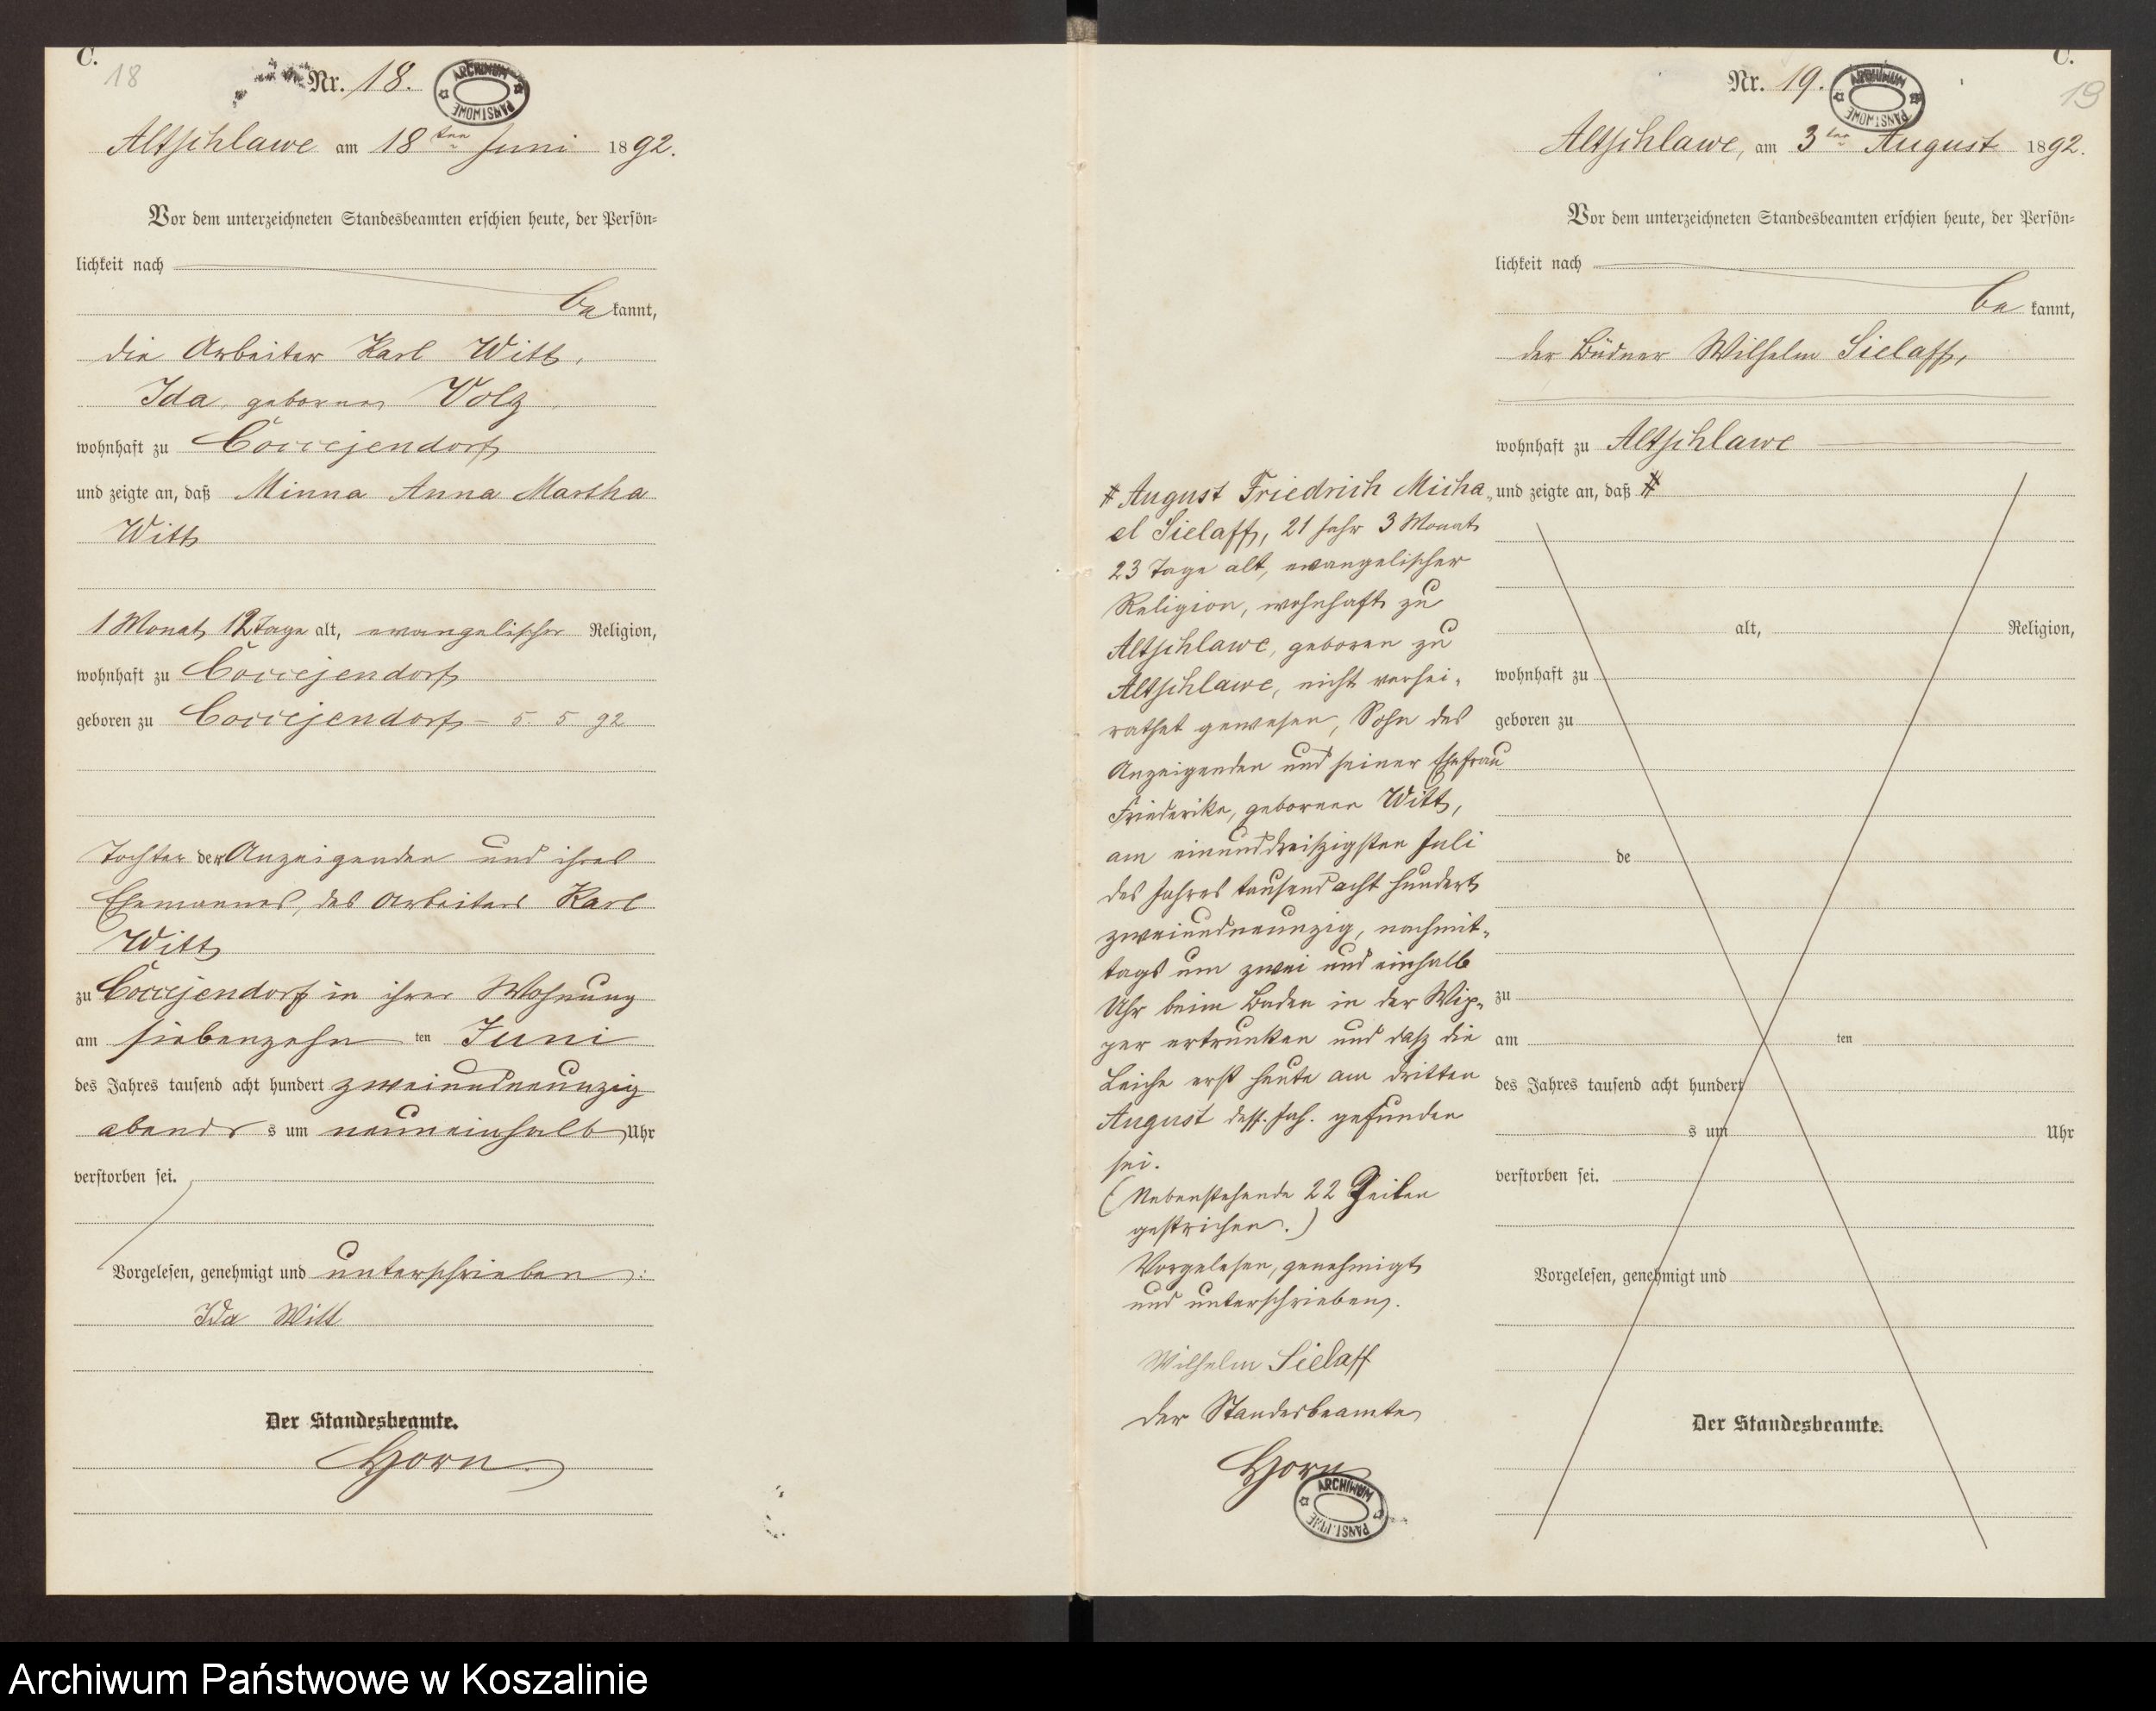 C.
18
Nr. 18.
ARCHIWUM PAŃSTWOWE
Altschlawe am 18ten Juni 1892.
Vor dem unterzeichneten Standesbeamten erschien heute, der Persön-
lichkeit nach
be kannt,
die Arbeiter Karl Witt,
Ida geborene Volz
wohnhaft zu Coccejendorf
und zeigte an, daß Minna Anna Martha
Witt
1 Monat 12 Tage alt, evangelischer Religion,
wohnhaft zu Coccejendorf
geboren zu Coccejendorf - 5 5 92
Tochter der Anzeigenden und ihres
Ehemannes, des Arbeiters Karl
Witt
zu Coccejendorf in ihrer Wohnung
am siebenzehn ten Juni
des Jahres tausend acht hundert zweiundneunzig
abends s um neuneinhalb Uhr
verstorben sei.
Vorgelesen, genehmigt und unterschrieben:
Ida Witt
Der Standesbeamte.
Horn
C.
19
Nr. 19.
ARCHIWUM PAŃSTWOWE
Altschlawe, am 3ten August 1892.
Vor dem unterzeichneten Standesbeamten erschien heute, der Persön-
lichkeit nach
be kannt,
der Büdner Wilhelm Sielaff,
wohnhaft zu Altschlawe
und zeigte an, daß #
# August Friedrich Micha-
el Sielaff, 21 Jahr 3 Monat
23 Tage alt, evangelischer
Religion, wohnhaft zu
Altschlawe, geboren zu
Altschlawe, nicht verhei-
rathet gewesen, Sohn des
Anzeigenden und seiner Ehefrau
Friederike, geborner Witt,
am einunddreißigsten Juli
des Jahres tausend acht hundert
zweiundneunzig, nachmit-
tags um zwei und einhalb
Uhr beim Baden in der Wip-
per ertrunken und daß die
Leiche erst heute am dritten
August dess. Jah. gefunden
sei.
(Nebenstehende 22 Zeilen
gestrichen.)
Vorgelesen, genehmigt
und unterschrieben.
Wilhelm Sielaff
Der Standesbeamte
Horn
ARCHIWUM PAŃSTWOWE
alt, Religion,
wohnhaft zu
geboren zu
de
zu
am ten
des Jahres tausend acht hundert
s um Uhr
verstorben sei.
Vorgelesen, genehmigt und
Der Standesbeamte.
Archiwum Państwowe w Koszalinie